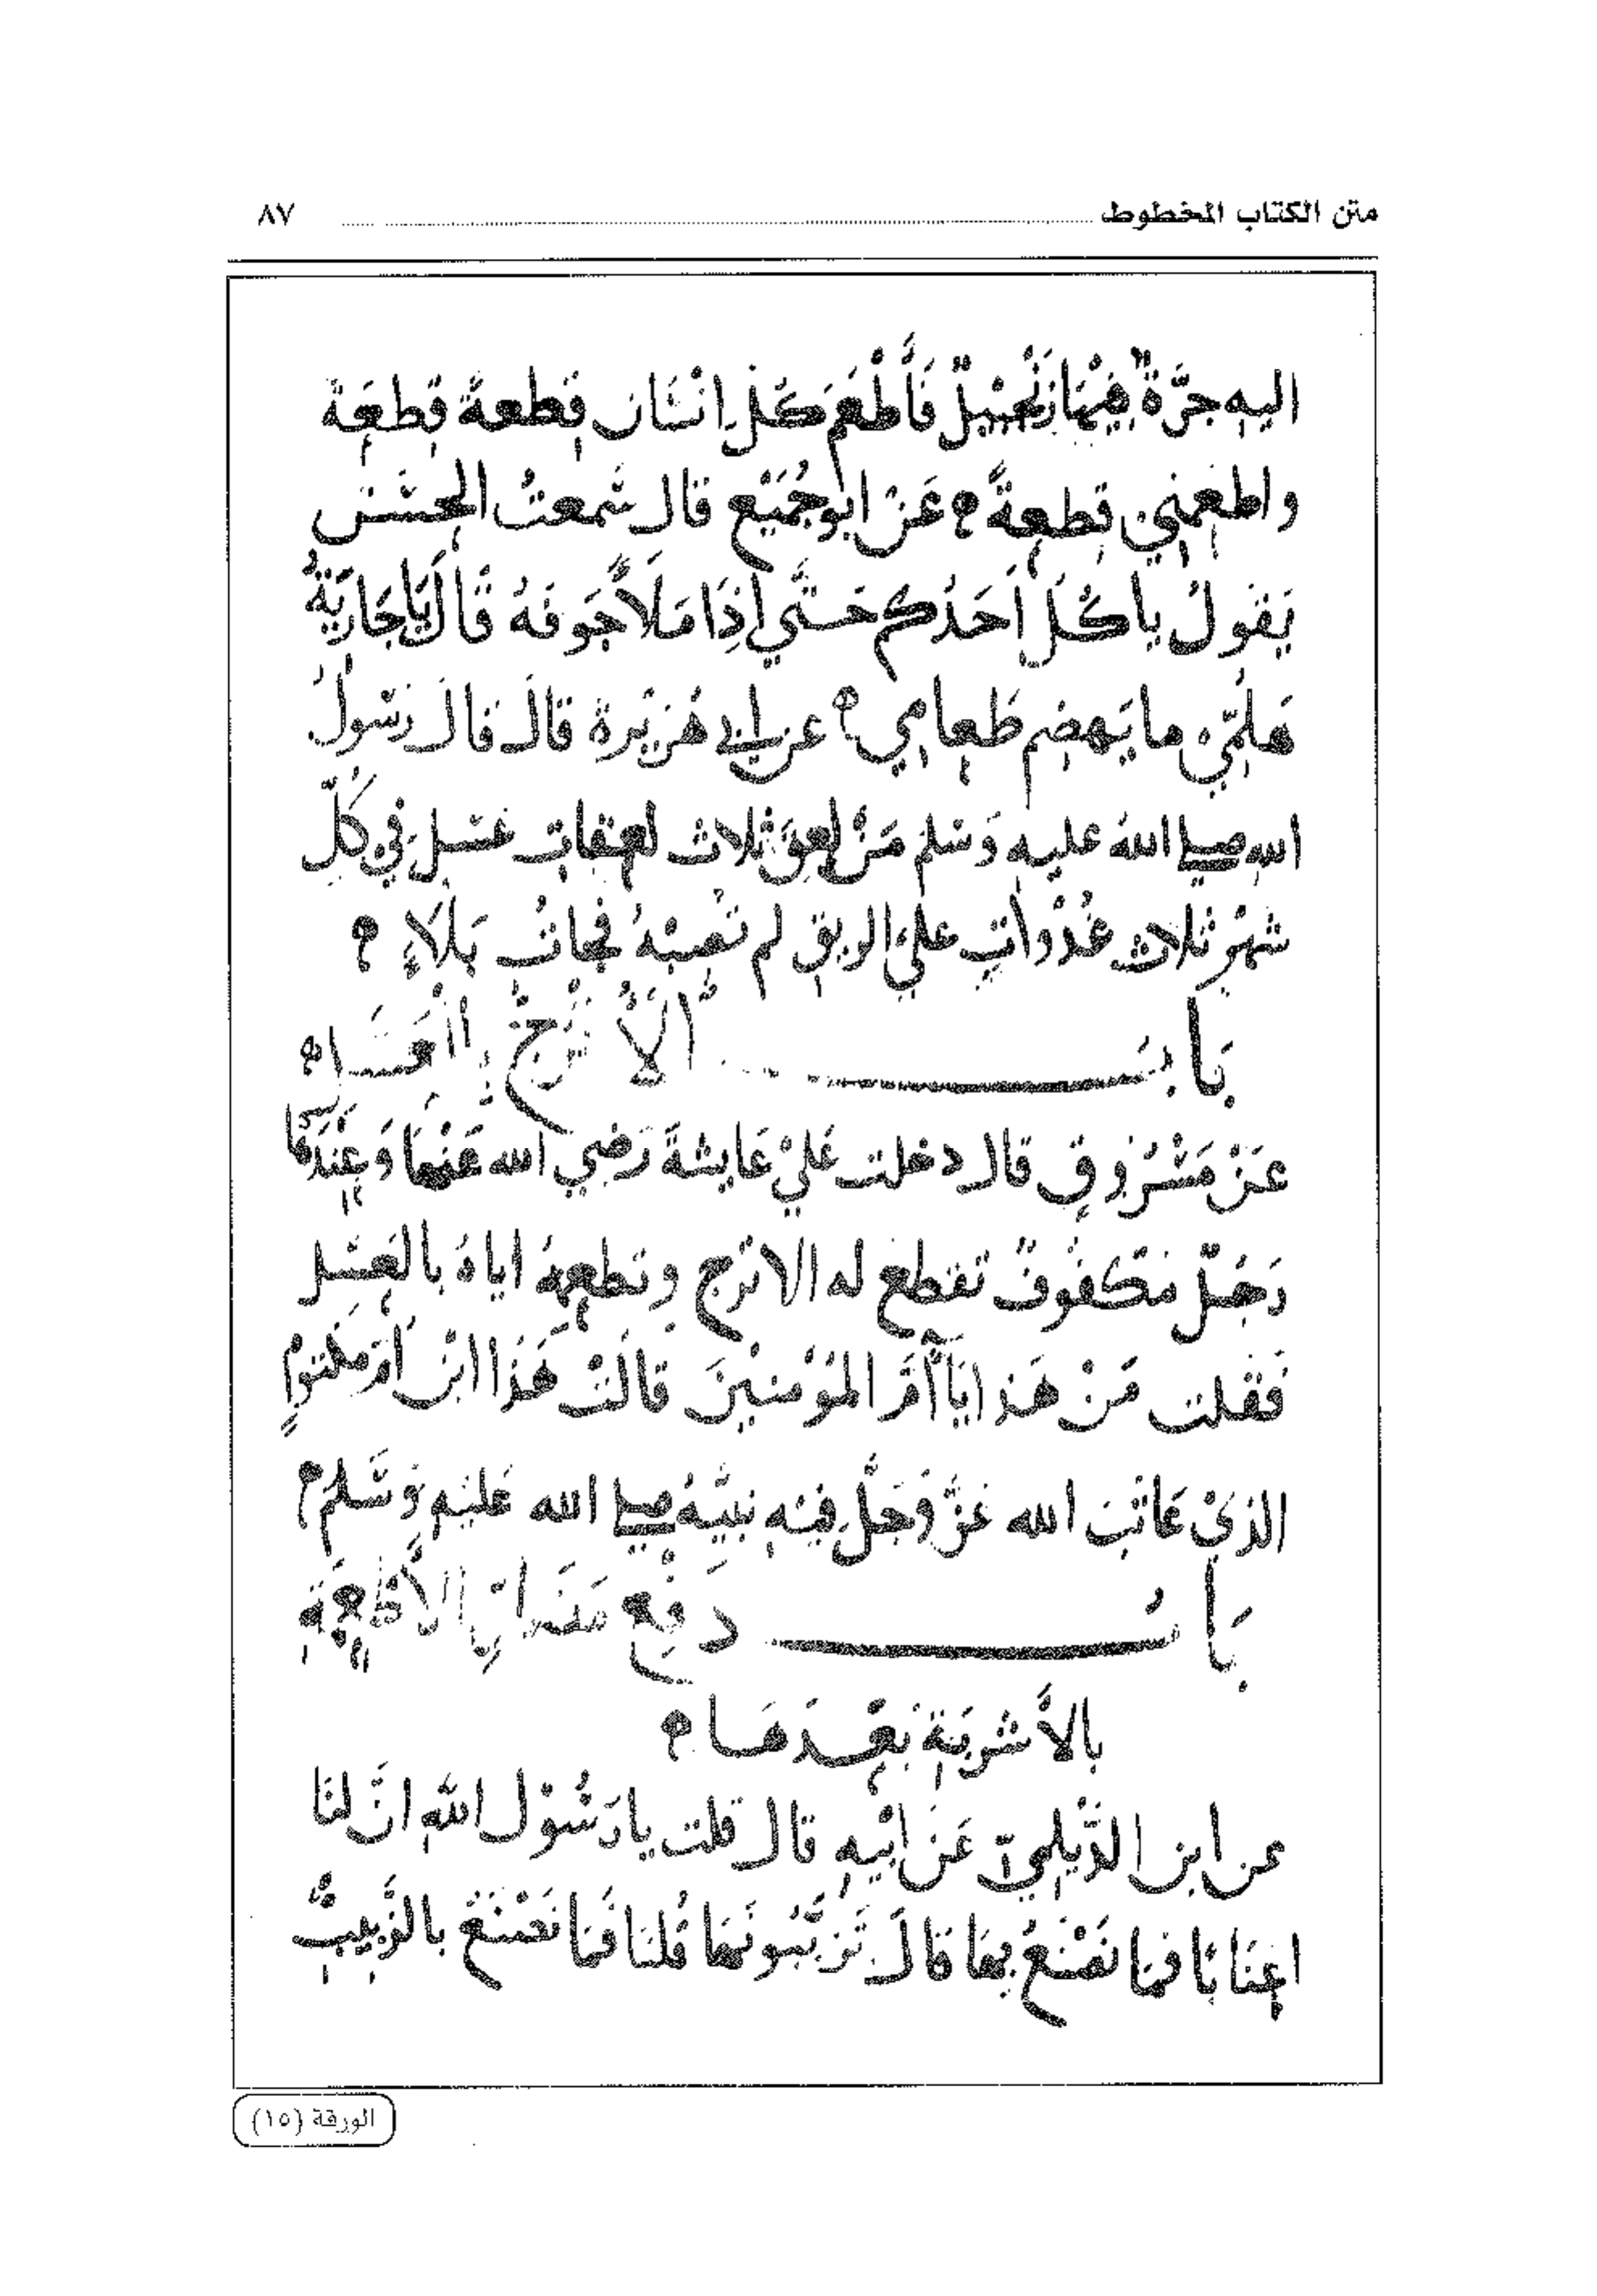 متن الكتاب المخطوط ٨٧
اليه جرَّةً فيْهَا زنْجَبيْلٌ فَأَطْعَمَ كُلَّ انْسَانٍ قطعةً قِطعَةً
واطعمني قطعةً ۞ عَنْ ابو جُمَيْع قال سَمعتُ الحسَن
يَقولُ ياكُل أحَدُكم حَتَّي إذَا مَلَأَ جَوفهُ قَالَ يَا جَارِيَةُ
هَلُمّي ما يَهضم طَعامي ۞ عن ابي هُرَيْرة قالَ قالَ رَسُولُ
الله صلي اللهُ عليه وَسَلم مَنْ لعِقَ ثلاث لعقاتٍ عَسَلٍ في كُلِّ
شهْرٍ ثلاث غُدْواتٍ عليْ الريقِ لم تُصِبْهُ فجاتُ بَلَاءٍ ۞
بَابُ الأُتْرُجّ بالْعَسَل ۞
عَنْ مَسْرُوقٍ قال دخلت عَليْ عَايشةَ رَضي الله عَنْهَا وَعِنْدَهَا
رَجُلٌ مَكفُوفٌ تقطع له الاترج وتطعمهُ اياهُ بالعَسَل
فَقلت مَنْ هَذا يَا أُمَّ المُؤمنيْنَ قالَتْ هَذا ابْن اُمّ مَكتومٍ
الذيْ عَاتَبَ الله عَزَّ وَجَلَّ فيْهِ نبيَّهُ صلي الله عَليْهِ وَسَّلمْ ۞
بَابُ دَفْعِ مَضَراتِ الأَطْعِمَةِ
بالأَشربَةِ بَعْدَهَا ۞
عن ابن الدَّيْلميّ عَنْ ابيْهِ قال قلت يا رَسُوْل اللهِ انَّ لنَا
اعْنَابًا فمَا نَصْنَعُ بهَا قالَ تَزَبِّبُونَهَا قُلنَا فَمَا نَصْنَعُ بالزَّبيبِ
الورقة (١٥)